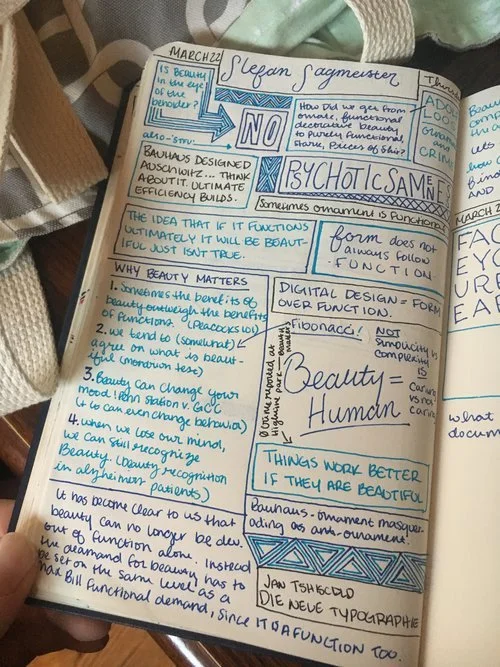 MARCH 22
Stefan Sagmeister
Thurs
IS BEAUTY
in the eye
of the
beholder?
NO
How Did we get from
ornate, functional
decorative beauty
to purely functional,
stark, pieces of shit?
ADOL
LOOS
Ornament
and
CRIM
also
BAUHAUS DESIGNED
AUSCHWITZ... THINK
ABOUT IT. ULTIMATE
EFFICIENCY BUILDS.
PSYCHOTIC SAMENESS
Sometimes ornament is functional
THE IDEA THAT IF IT FUNCTIONS
ULTIMATELY IT WILL BE BEAUT-
IFUL JUST ISN'T TRUE.
form does not
always follow
FUNCTION
WHY BEAUTY MATTERS
1. Sometimes the benefits of
beauty outweigh the benefits
of functions (Peacocks lol)
2. we tend to (somewhat)
agree on what is beaut-
iful (mondrian test)
3. Beauty can change your
mood! Penn Station v. GCC
(+ to can even change behavior)
4. when we lose our mind,
we can still recognize
Beauty. (beauty recognition
in alzheimer patients)
DIGITAL DESIGN = FORM
OVER FUNCTION.
Fibonacci!
NOT
simplicity vs
complexity
IS
caring
vs not
caring
reported at
Highline park
Beauty =
Human
THINGS WORK BETTER
IF THEY ARE BEAUTIFUL
Bauhaus - ornament masquer-
ading as anti-ornament!
JAN TSHISCOLD
DIE NEUE TYPOGRAPHIE
It has become clear to us that
beauty can no longer be dev.
out of function alone. Instead
the demand for beauty has to
be set on the same level as a
Max Bill functional demand, since IT IS A FUNCTION TOO.
Beau
comp
thi
Lets
how
find
AND
MARCH 2
FAC
EYC
URE
EAL
what
docum